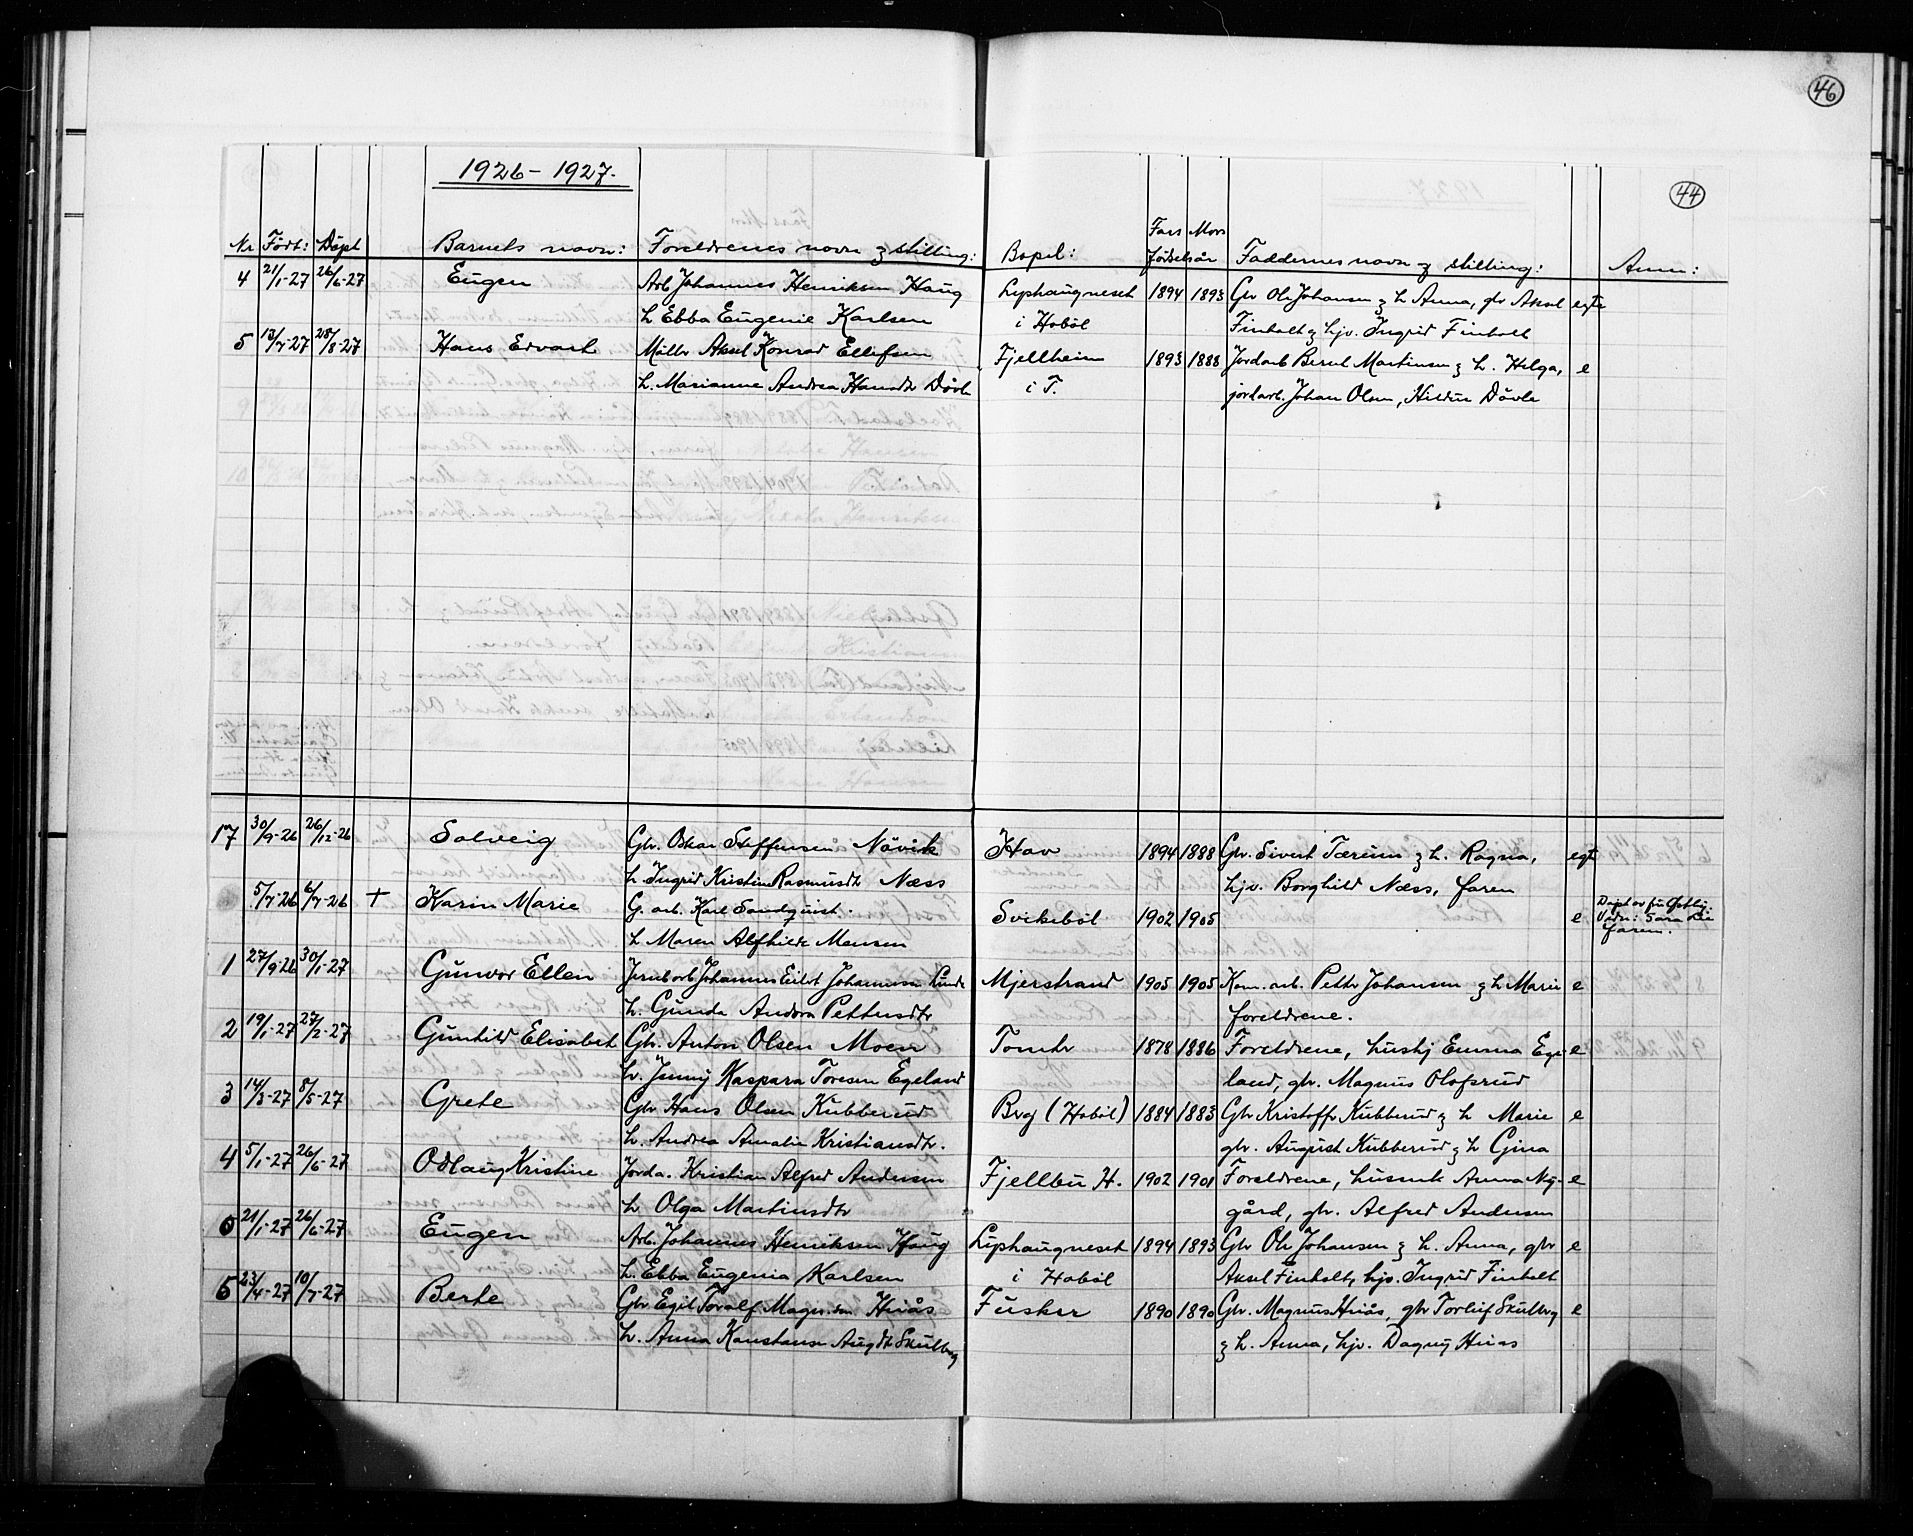 46
1926 - 1927.
44
Nr Födt: Döpt Barnets navn: Foreldrenes navn og stilling: Bopel: Fars Mors födselsår Faddernes navn og stilling: Anm:
4 21/1-27 26/6-27 Eugen Arb. Johannes Henriksen Haug Lyphaugneset 1894 1893 Gbr Ole Johansen og h. Anna, gbr Aksel egte
h Ebba Eugenie Karlsen i Hobøl Finholt og hjv. Ingrid Finholt
5 13/7-27 28/8-27 Hans Edvart Möller Aksel Konrad Ellefsen Fjellheim 1893 1888 Jordarb Bernt Martinsen og h. Helga, e
h. Marianne Andrea Hansdtr Dövle i T. jordarb. Johan Olsen, Hildur Dövle
17 30/9-26 26/12-26 Solveig Gbr. Oskar Steffensen Növik Hov 1894 1888 Gbr. Sivert Tærum og h. Ragna, egt
h. Ingrid Kristine Rasmusdtr Næss hjv. Borghild Næss, faren
5/7-26 6/7-26 + Karin Marie G. arb. Karl Sandquist. Svikeböl 1902 1905 e Döpt av fru Östby.
h Maren Alfhilde Monsen Vidn: Sara
faren.
1 27/9-26 30/1-27 Gunvor Ellen Jernbarb Johannes Eilert Johannesen Lunde Mjerstrand 1905 1905 Kom. arb. Petter Johansen og h Marie e
h. Gunda Andora Pettersdtr foreldrene.
2 19/1-27 27/2-27 Gunhild Elisabet Gbr. Anton Olsen Moen Tomter 1878 1886 Foreldrene, hushj Emma Ege- e
h. Jenny Kaspara Toresen Egeland land, gbr. Magnus Olofsrud
3 14/3-27 8/5-27 Grete Gbr Hans Olsen Kubberud Berg (Hobøl) 1884 1883 Gbr Kristoffer Kubberud og h Marie e
h. Andrea Amalie Kristiansdtr. gbr. August Kubberud og h Gina
4 5/1-27 26/6-27 Odlaug Kristine Jorda. Kristian Alfred Andersen Fjellbu H. 1902 1901 Foreldrene, husmk Anna Ny- e
h Olga Martinsdtr gård, gbr. Alfred Andersen
21/1-27 26/6-27 Eugen Arb. Johannes Henriksen Haug Lyphaugneset 1894 1893 Gbr Ole Johansen og h. Anna, gbr e
h. Ebba Eugenia Karlsen i Hobøl Aksel Finholt, hjv. Ingrid Finholt
5 23/4-27 10/7-27 Berte Gbr Egil Toralf Magn.sen Huås Fusker 1890 1890 Gbr. Magnus Huås, gbr Torleif Skulberg e
h. Anna Konstanse Aug.dtr Skulberg og h. Anna, hjv. Dagny Huås